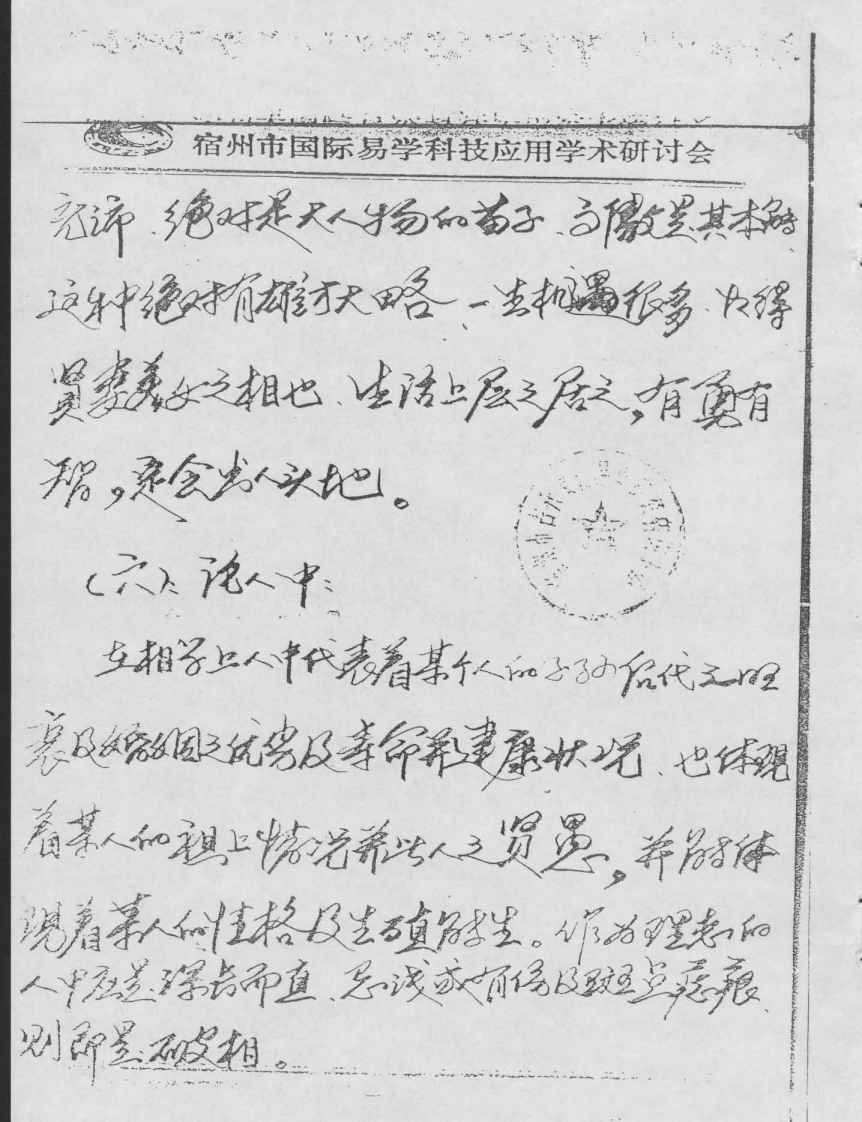 宿州市国际易学科技应用学术研讨会
绝对是大人物的苗子、高傲是其本
这种绝对有雄才大略、一生机遇很多、必得
贤妻美女之相也、生活上居之、有勇有
智,是会出人头地。
(六)、论人中:
在相学上人中代表着某个人的子孙后代之旺
衰及婚姻之优劣及寿命和健康状况、也体现
着某人的祖上情况并此人之贤愚,并体
现着某人的性格及生殖。作为理想的
人中应是深长而直、忌浅或有伤及斑点痣痕、
则即是破相。